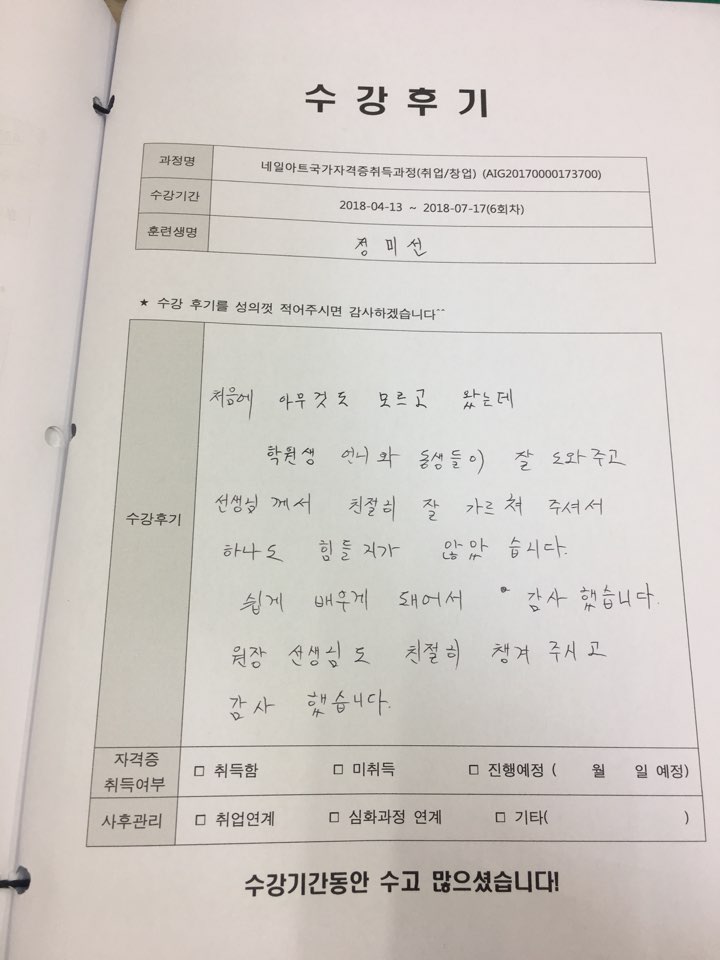 수강후기
과정명 네일아트국가자격증취득과정(취업/창업) (AIG20170000173700)
수강기간 2018-04-13 ~ 2018-07-17(6회차)
훈련생명 정미선
★ 수강 후기를 성의껏 적어주시면 감사하겠습니다^^
처음에 아무것도 모르고 왔는데
학원생 언니와 동생들이 잘 도와주고
선생님께서 친절히 잘 가르쳐 주셔서
수강후기
하나도 힘들지가 않았습니다.
쉽게 배우게 돼어서 감사했습니다.
원장 선생님도 친절히 챙겨 주시고
감사했습니다.
자격증 취득여부 □ 취득함 □ 미취득 □ 진행예정 ( 월 일 예정)
사후관리 □ 취업연계 □ 심화과정 연계 □ 기타( )
수강기간동안 수고 많으셨습니다!